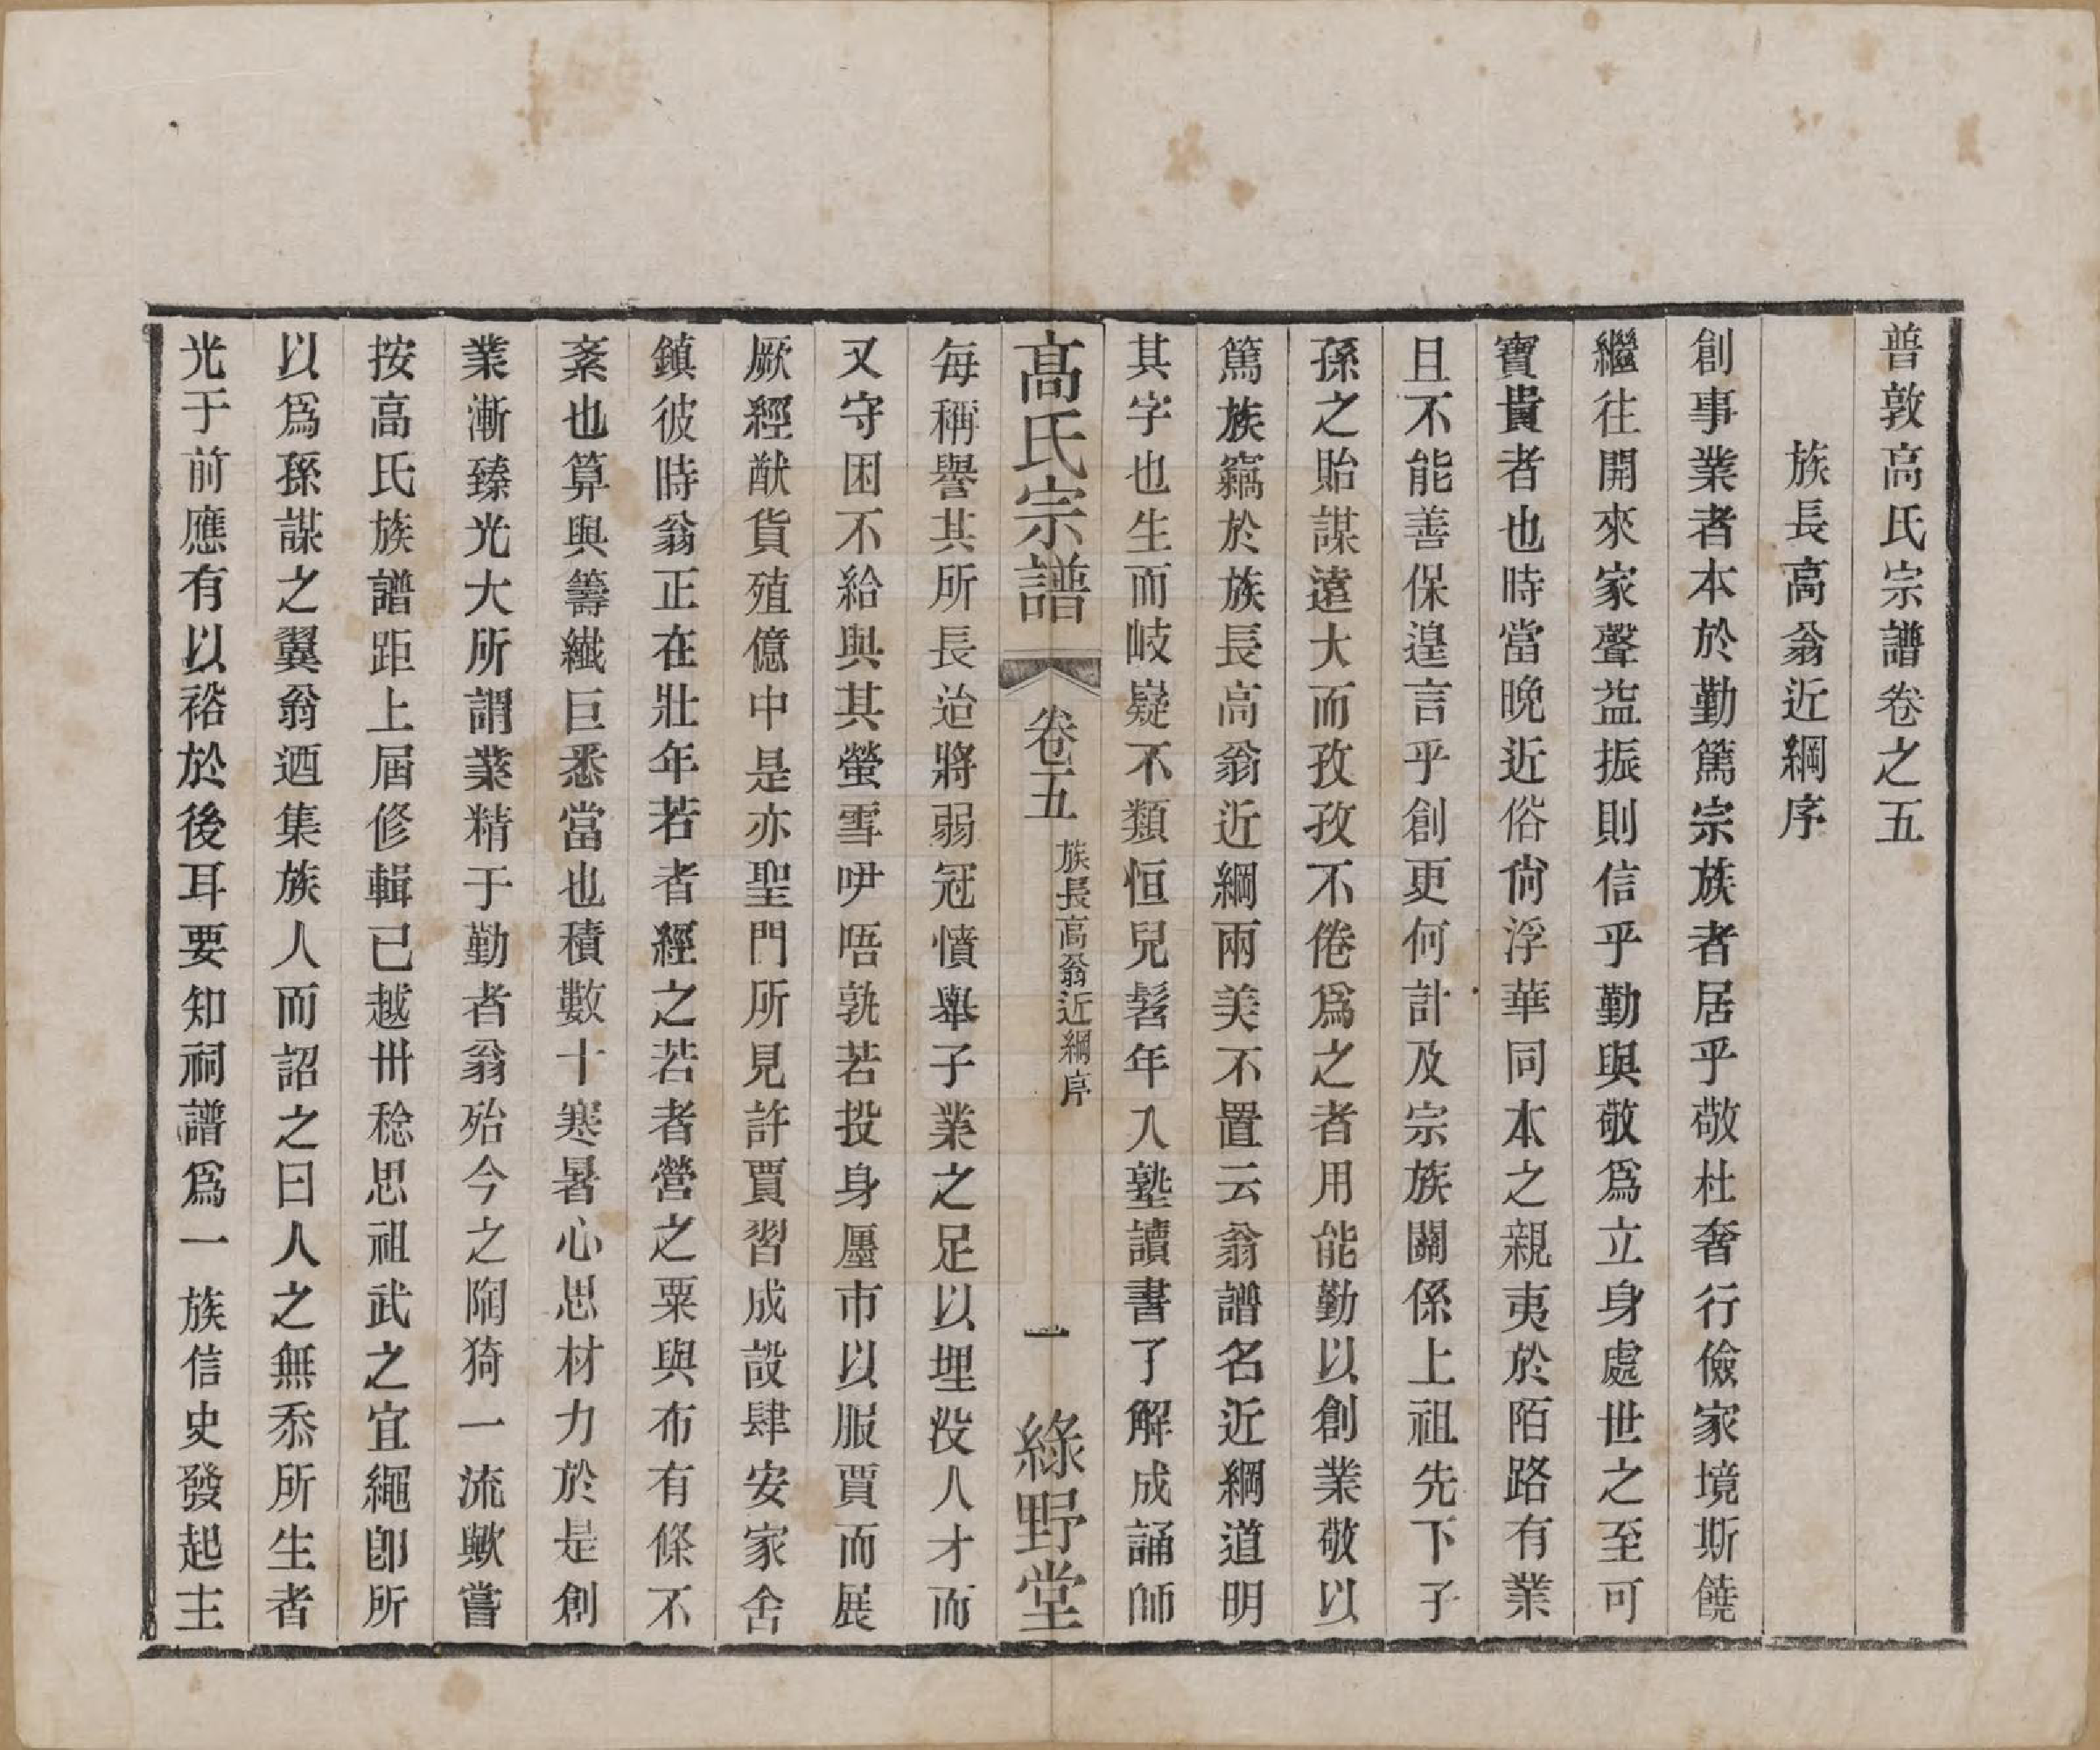 普敦高氏宗譜卷之五
族長高翁近綱序
創事業者本於勤篤宗族者居乎敬杜奢行儉家境斯饒
繼往開來家聲益振則信乎勤與敬爲立身處世之至可
寶貴者也時當晚近俗尙浮華同本之親夷於陌路有業
且不能善保遑言乎創更何計及宗族關係上祖先下子
孫之貽謀遠大而孜孜不倦爲之者用能勤以創業敬以
篤族竊於族長高翁近綱兩美不置云翁譜名近綱道明
其字也生而岐嶷不類恒兒髫年入塾讀書了解成誦師
高氏宗譜
卷五
族長高翁近綱序
一
綠野堂
每稱譽其所長迨將弱冠憤舉子業之足以埋没人才而
又守困不給與其螢雪咿唔孰若投身廛市以服賈而展
厥經猷貨殖億中是亦聖門所見許賈習成設肆安家舍
鎮彼時翁正在壯年若者經之若者營之粟與布有條不
紊也算與籌纖巨悉當也積數十寒暑心思材力於是創
業漸臻光大所謂業精于勤者翁殆今之陶猗一流歟嘗
按高氏族譜距上屆修輯已越卅稔思祖武之宜繩卽所
以爲孫謀之翼翁迺集族人而詔之曰人之無忝所生者
光于前應有以裕於後耳要知祠譜爲一族信史發起主